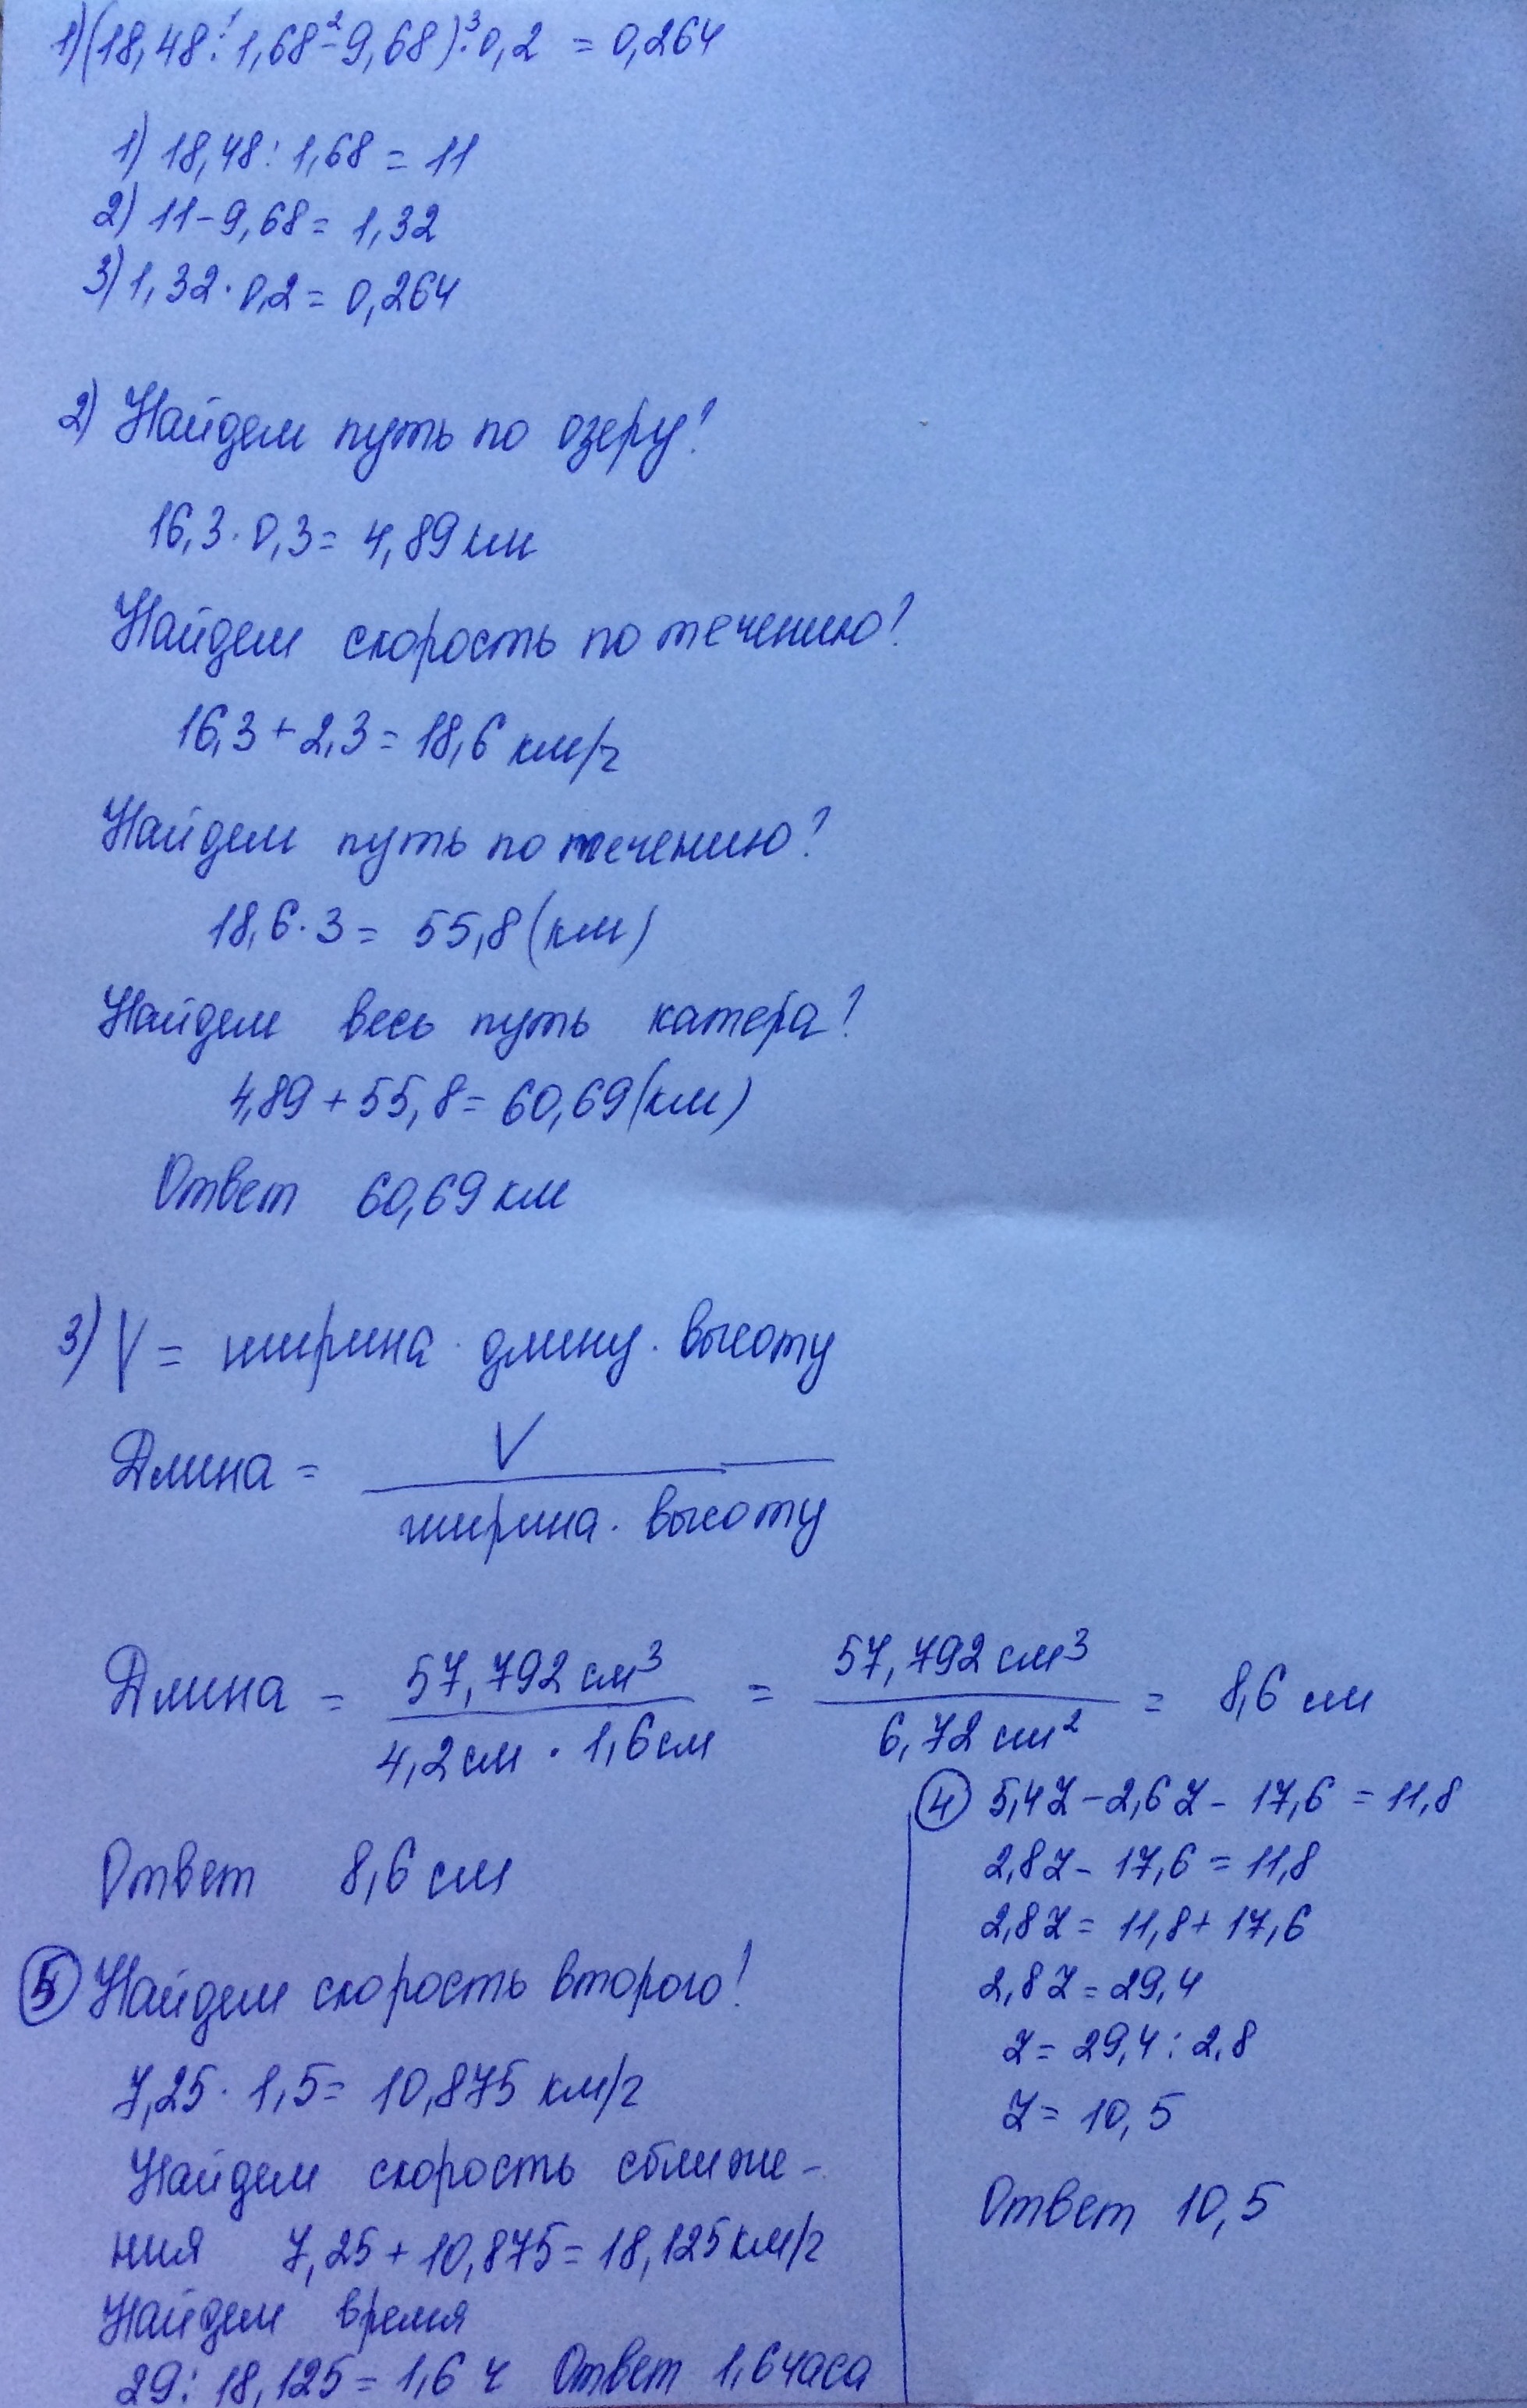 1) (18,48 : 1,68 - 9,68) · 0,2 = 0,264
1) 18,48 : 1,68 = 11
2) 11 - 9,68 = 1,32
3) 1,32 · 0,2 = 0,264
2) Найдем путь по озеру!
16,3 · 0,3 = 4,89 км
Найдем скорость по течению!
16,3 + 2,3 = 18,6 км/г
Найдем путь по течению?
18,6 · 3 = 55,8 (км)
Найдем весь путь катера!
4,89 + 55,8 = 60,69 (км)
Ответ 60,69 км
3) V = ширина · длину · высоту
Длина = V / ширина · высоту
Длина = 57,792 см³ / 4,2 см · 1,6 см = 57,792 см³ / 6,72 см² = 8,6 см
Ответ 8,6 см
④ 5,4Z - 2,6Z - 17,6 = 11,8
2,8Z - 17,6 = 11,8
2,8Z = 11,8 + 17,6
2,8Z = 29,4
Z = 29,4 : 2,8
Z = 10,5
Ответ 10,5
⑤ Найдем скорость второго!
7,25 · 1,5 = 10,875 км/г
Найдем скорость сближе-
ния 7,25 + 10,875 = 18,125 км/г
Найдем время
29 : 18,125 = 1,6 ч Ответ 1,6 часа